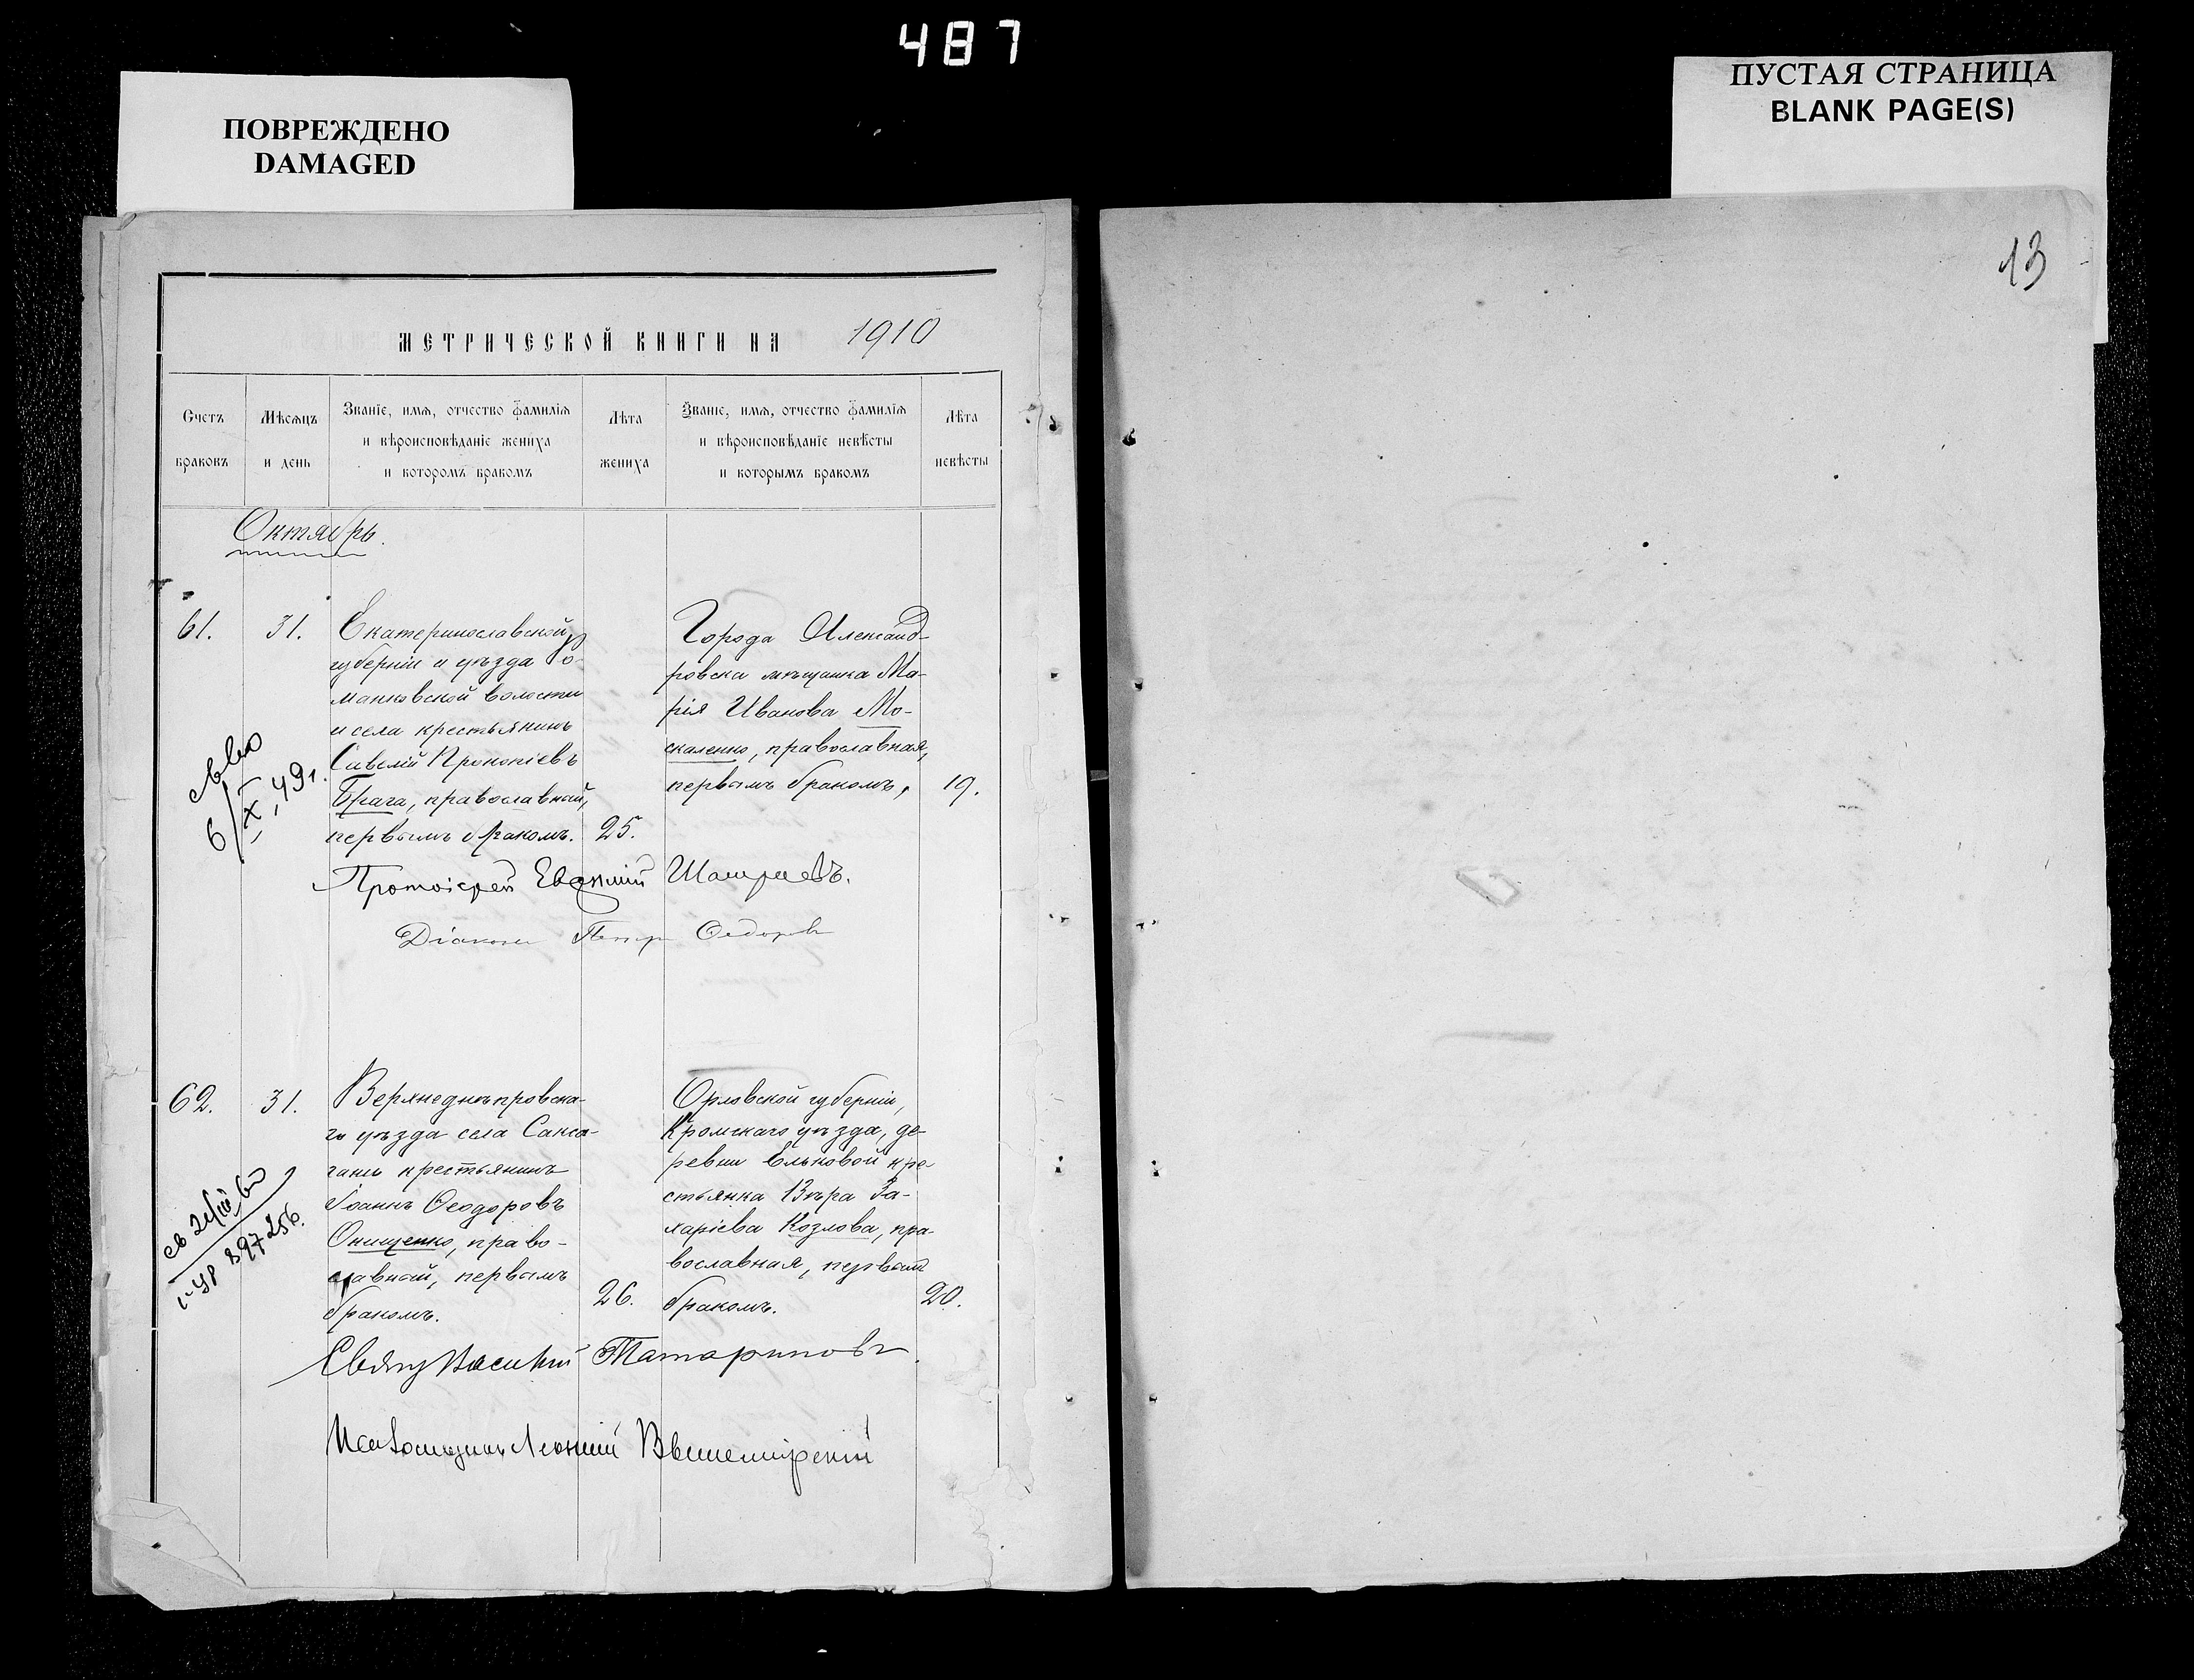 487
ПОВРЕЖДЕНО
DAMAGED
ПУСТАЯ СТРАНИЦА
BLANK PAGE(S)
13
МЕТРИЧЕСКОЙ КНИГИ НА 1910
Счетъ
браковъ
Мѣсяцъ
и день
Званіе, имя, отчество фамилія
и вѣроисповѣданіе жениха
и которомъ бракомъ
Лѣта
жениха
Званіе, имя, отчество фамилія
и вѣроисповѣданіе невѣсты
и которымъ бракомъ
Лѣта
невѣсты
Октябрь.
61.
31.
Екатеринославской
губерніи и уѣзда Ро-
манковской волости
и села крестьянинъ
Савелій Прокопіевъ
Брага, православный,
первымъ бракомъ.
25.
Города Александ-
ровска мѣщанка Ма-
рія Иванова Мо-
скаленко, православная,
первымъ бракомъ,
19.
6/X 49г.
Протоіерей Евѳимій
Діаконъ Петръ Ѳедоровъ
62.
31.
Верхнеднѣпровска-
го уѣзда села Сакса-
гань крестьянинъ
Іоаннъ Ѳеодоровъ
Онищенко, право-
славный, первымъ
бракомъ.
26.
Орловской губерніи,
Кромскаго уѣзда, де-
ревни Ельковой кре-
стьянка Вѣра За-
харіева Козлова, пра-
вославная, первымъ
бракомъ.
20.
897256.
Свящ Василій Татариновъ.
Псаломщикъ Леонтій